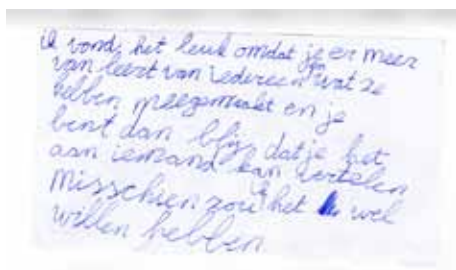 ik vond het leuk omdat je er meer
van leert van iedereen wat ze
hebben meegemaakt en je
bent dan blij dat je het
aan iemand kan vertelen
Misschien zou ik het wel
willen hebben